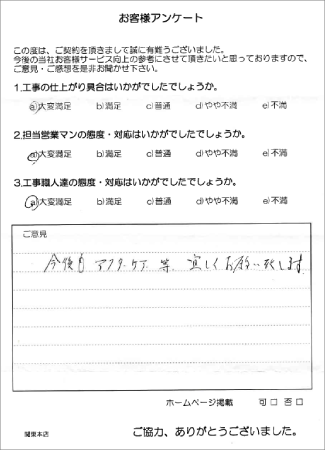 お客様アンケート
この度は、ご契約を頂きまして誠に有難うございました。
今後の当社お客様サービス向上の参考にさせて頂きたいと思っておりますので、
ご意見・ご感想を是非お聞かせ下さい。
1.工事の仕上がり具合はいかがでしたでしょうか。
a)大変満足 b)満足 c)普通 d)やや不満 e)不満
2.担当営業マンの態度・対応はいかがでしたでしょうか。
a)大変満足 b)満足 c)普通 d)やや不満 e)不満
3.工事職人達の態度・対応はいかがでしたでしょうか。
a)大変満足 b)満足 c)普通 d)やや不満 e)不満
ご意見
今後も アフターケア 等 宜しくお願い致します
ホームページ掲載 可口 否口
関東本店
ご協力、ありがとうございました。